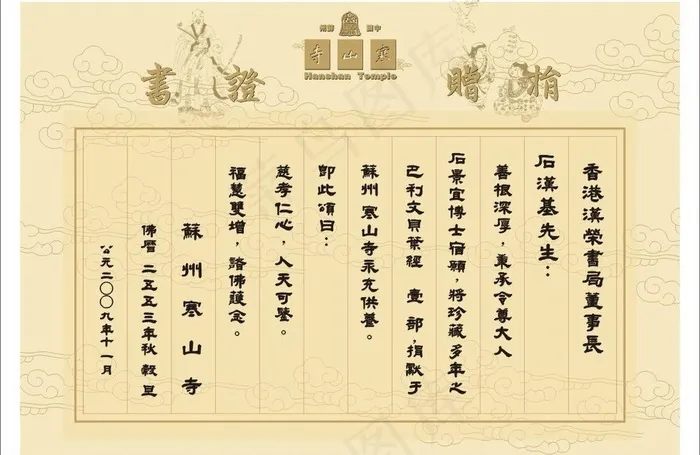 中國 蘇州
寒山寺
Hanshan Temple
捐贈證書
香港漢榮書局董事長
石漢基先生：
善根深厚，秉承令尊大人
石景宜博士宿願，將珍藏多年之
巴利文貝葉經 壹 部，捐獻于
蘇州 寒山寺永充供養。
即此頌曰：
慈孝仁心，人天可鑒。
福慧雙增，諸佛護念。
蘇州寒山寺
佛曆 二五五三年秋 穀旦
公元二〇〇九年十一月